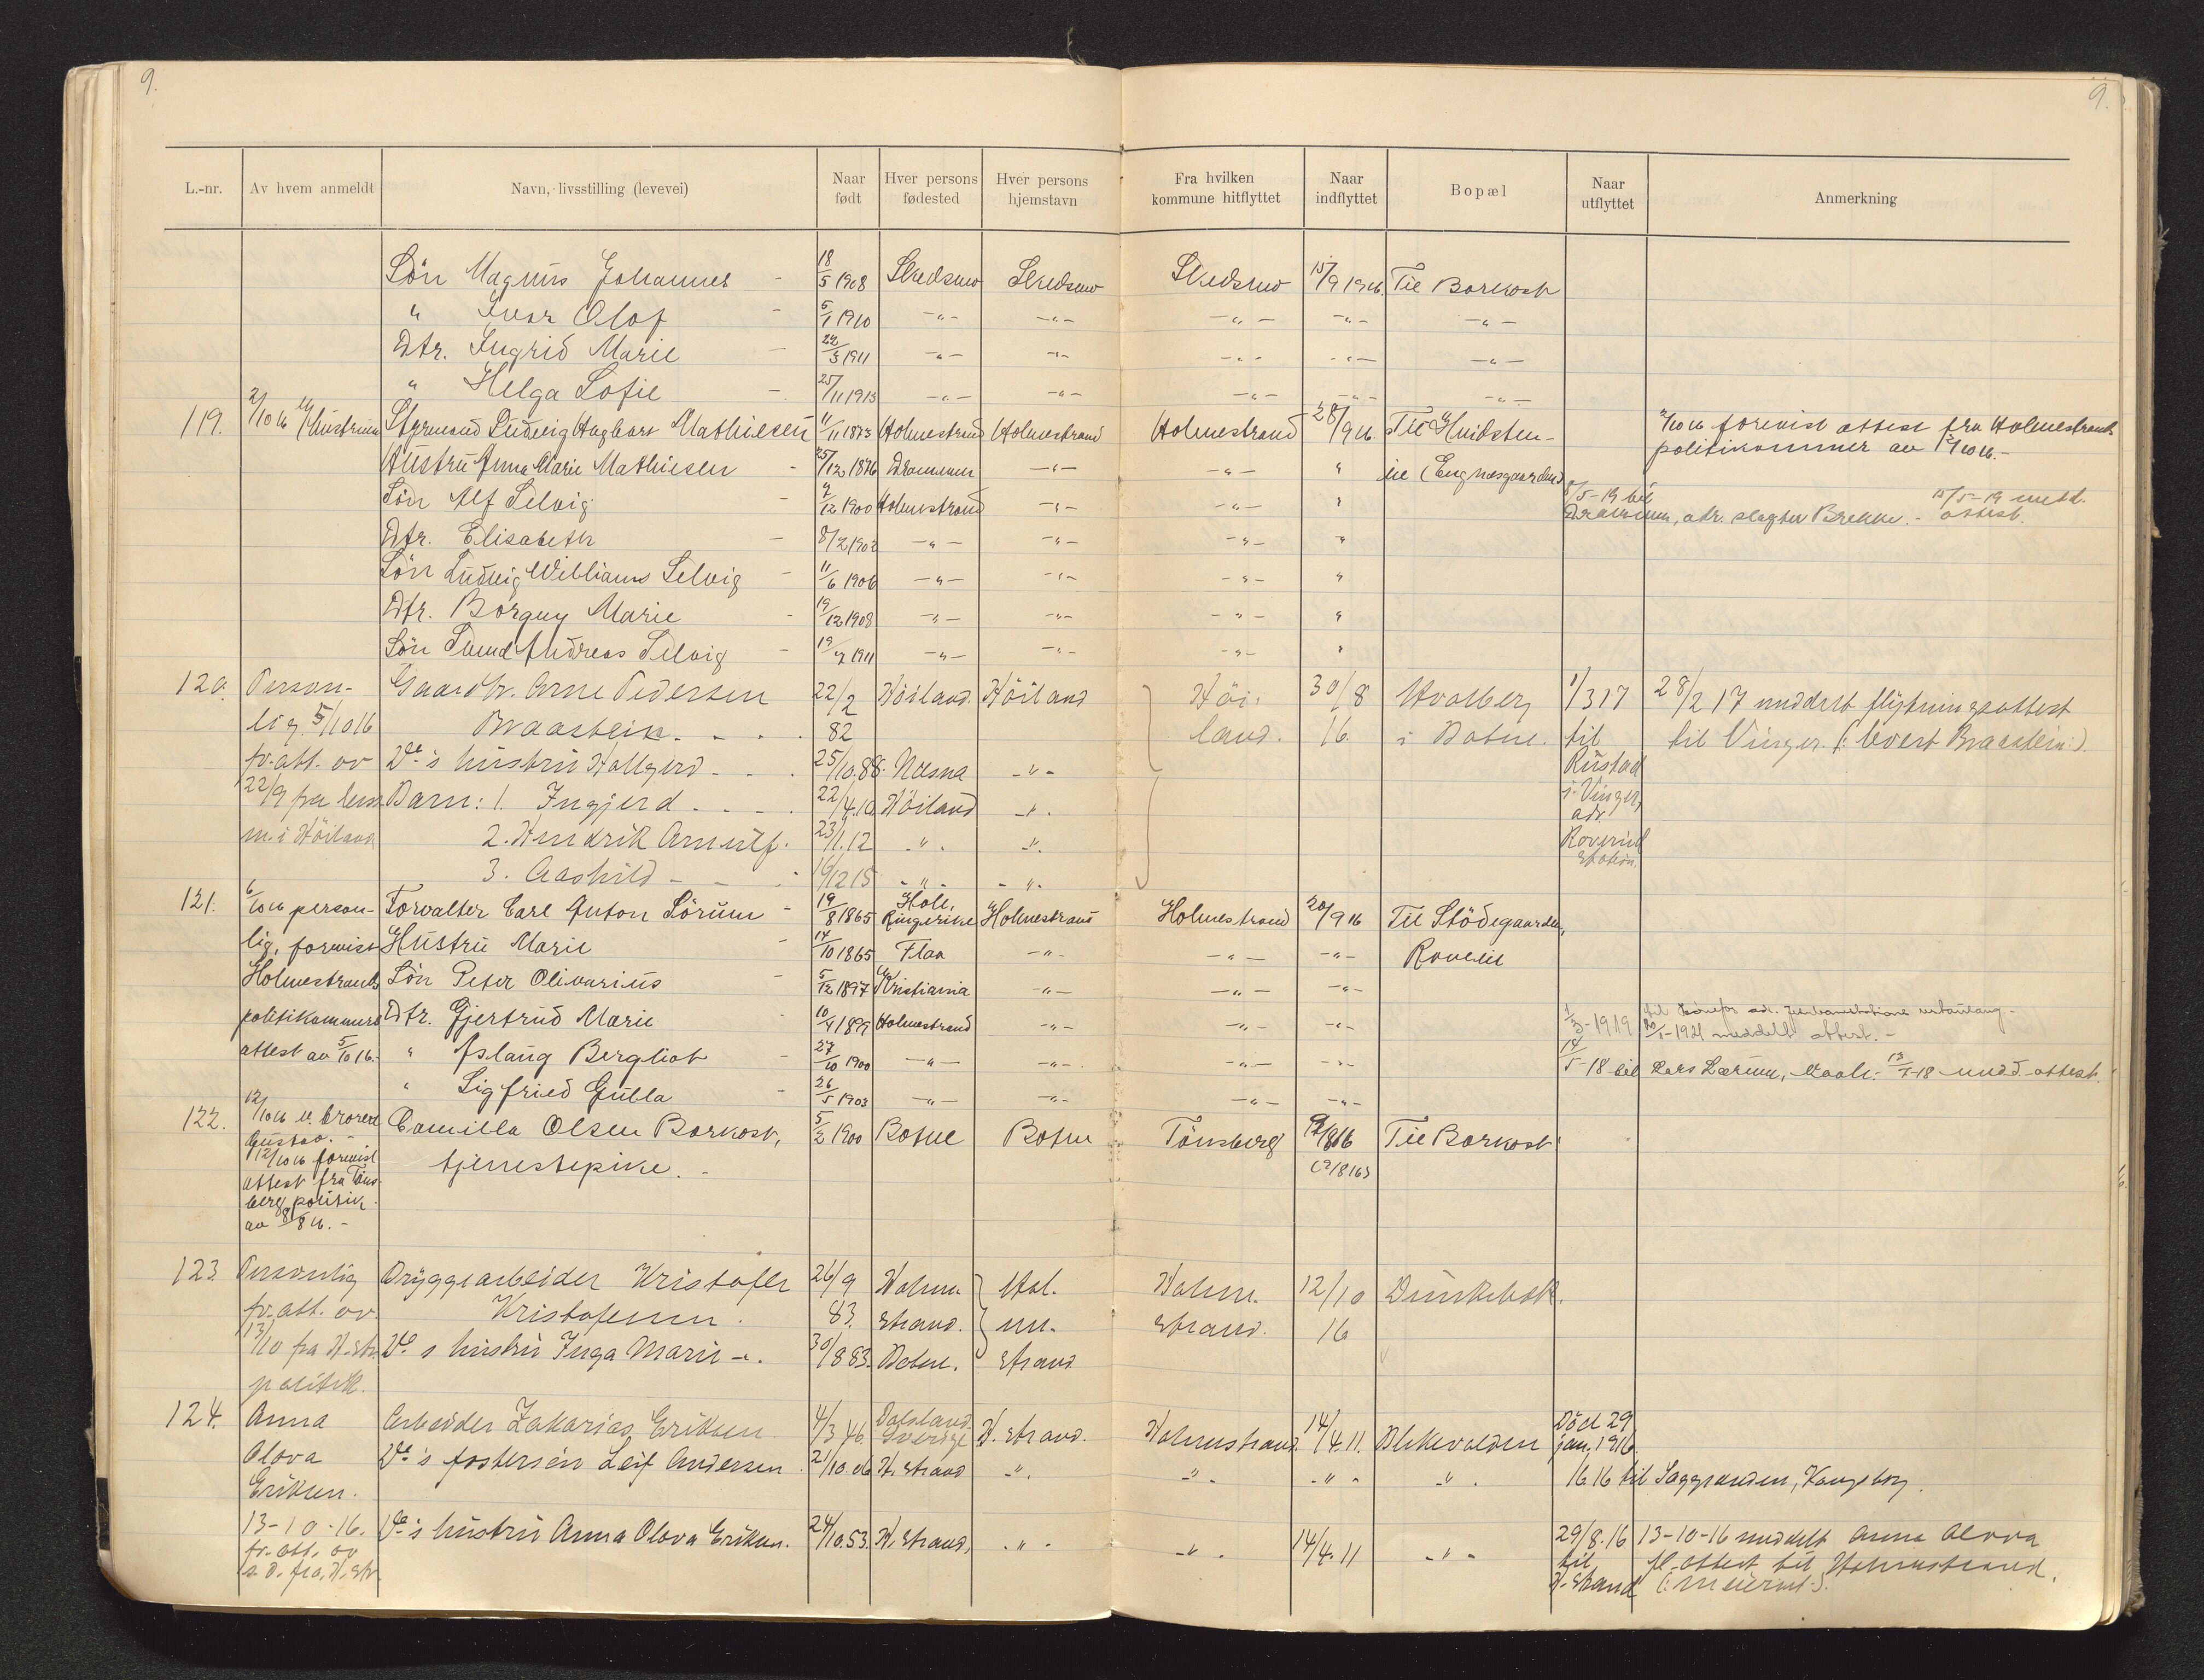 9.
9.
L.-nr. Av hvem anmeldt Navn, livsstilling (levevei) Naar født Hver persons fødested Hver persons hjemstavn Fra hvilken kommune hitflyttet Naar indflyttet Bopæl Naar utflyttet Anmerkning
Sön Magnus Johannes - 18/5 1908 Skedsmo Skedsmo Skedsmo 15/9 1916. Til Borkost
" Ivar Olof - 5/1 1910 -"- -"- -"- -"- -"-
Dtr. Ingrid Marie - 22/3 1911 -"- -"- -"- -"- -"-
" Helga Sofie - 25/11 1913 -"- -"- -"- -"- -"-
119. 2/10 16 Hustruen Styrmand Ludvig Hagbart Mathiesen 11/11 1873 Holmestrand Holmestrand Holmestrand 28/9 16. Til Hvidsten- 2/10 16 forevist attest fra Holmestrands
Hustru Anna Marie Mathiesen - 25/12 1876 Drammen -"- -"- " lie (Engnesgaarden) politikammer av 2/10 16.-
Sön Alf Selvig - 7/12 1900 Holmestrand -"- -"- " 8/5-19 til 15/5-19 medd.
Drammen, adr. slagter Brekke. - attest.
Dtr. Elisabeth - 8/2 1902 -"- -"- -"- "
Sön Ludvig William Selvig - 11/6 1906 -"- -"- -"- "
Dtr. Borguy Marie - 19/12 1908 -"- -"- -"- "
Sön Andreas Selvig - 19/7 1911 -"- -"- -"- "
120. Person- Gaardbr. Arne Pedersen 22/2 Höiland. Höiland Höi- 30/8 Hvalberg 1/3 17 28/2 17 meddelt flytningsattest
lig 5/10 16 Braastein. 82 land. 16. i Botne. til til Vinger (: Evert Braastein:).
fr. att. av De's hustru Hallgerd 25/10.88. Næsna -"- Rustad
22/9 fra lens Barn: 1. Ingjerd 22/4.10 Höiland -". i Vinger,
m. i Höiland 2. Hendrik Arnulf. 23/1.12 -". -". adr.
Roverud
3. Aashild 16/12 15 -"- -"- station.
121. 6/10 16 person- Forvalter Carl Anton Sörum - 19/8 1865 Hole, Ringerike Holmestrand Holmestrand 20/9 16 Til Stödegaarden,
lig, forevist Hustru Marie - 14/10 1865 Flaa -"- -"- -"- Rovelie
Holmestrands Sön Peter Olivarius - 5/12 1897 Kristiania -"- -"- -"-
politikammers Dtr. Gjertrud Marie 10/4 1899 Holmestrand -"- -"- -"- 1/3-1919 20/1-1921 meddelt attest.-
attest av 5/10 16.- " Aslaug Bergliot - 27/10 1900 -"- -"- -"- -"- 14/5-18 til Lars Lærum, Vaale. 13/5-18 medd. attest.
" Sigfried Gulla - 26/5 1903 -"- -"- -"- -"-
122. 12/10 16 v. broren Camilla Olsen Borkost, 5/2 1900 Botne Botne Tönsberg 9/8 16 Til Borkost
Gustav.-
12/10 16 forevist tjenestepike.- (9/8 16)
attest fra Töns-
berg politik.
av 8/8 16.-
123. Personlig Bryggearbeider Kristofer 26/9 Holme- Hol- Holme- 12/10 Dunkebek.
fr. att. av Kristofersen. 83. strand. me- strand. 16
13/10 fra H.str. De's hustru Inga Marie -. 30/8 83. Botne. strand
politik.
124. Anna Arbeider Zakarias Eriksen 4/3 46. Dalsland Sverige H.strand. Holmestrand 14/4.11. Blekevolden Död 29 jan. 1916.
Olova De's fostersön Leif Andersen. 21/10.06 H.strand -". -". -"- -". 16 16 til Saggrenden, Kongsberg.
Eriksen.
13-10-16. De's hustru Anna Olova Eriksen. 24/10.53. H.strand, -"- -". 14/4.11 -"- 29/8.16 13-10-16 meddelt Anna Olova
fr. att. av til fl. attest til Holmestrand.
s.d. fra H.str. H.strand (: Meieriet:).